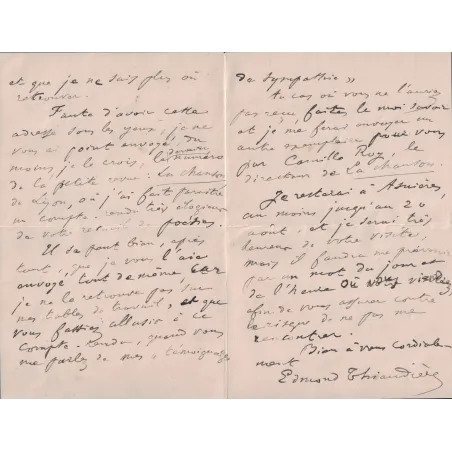 et que je ne sais plus où
retrouver.
Faute d'avoir cette
adresse sous les yeux, je ne
vous ai point envoyé, du
moins, je le crois, le numéro
de la petite revue: La chanson
de Lyon, où j'ai fait paraître
un compte-rendu très élogieux
de votre recueil de poésies.
Il se peut bien, après
tout, que je vous l'aie
envoyé tout de même, car
je ne le retrouve pas sur
mes tables de travail, et que
vous fassiez allusion à ce
compte-rendu, quand vous
me parlez de mes « témoignages
de sympathie »
Au cas où vous ne l'auriez
pas reçu, faites-le moi savoir
et je me ferai envoyer un
autre exemplaire pour vous
par Camille Roy, le
directeur de La chanson.
Je resterai à Asnières,
au moins jusqu'au 20
août, et je serai très
heureux de votre visite,
mais il faudra me prévenir
par un mot du jour et
de l'heure où vous viendrez,
afin de vous assurer contre
le risque de ne pas me
rencontrer.
Bien à vous cordiale-
ment
Edmond Thiaudière